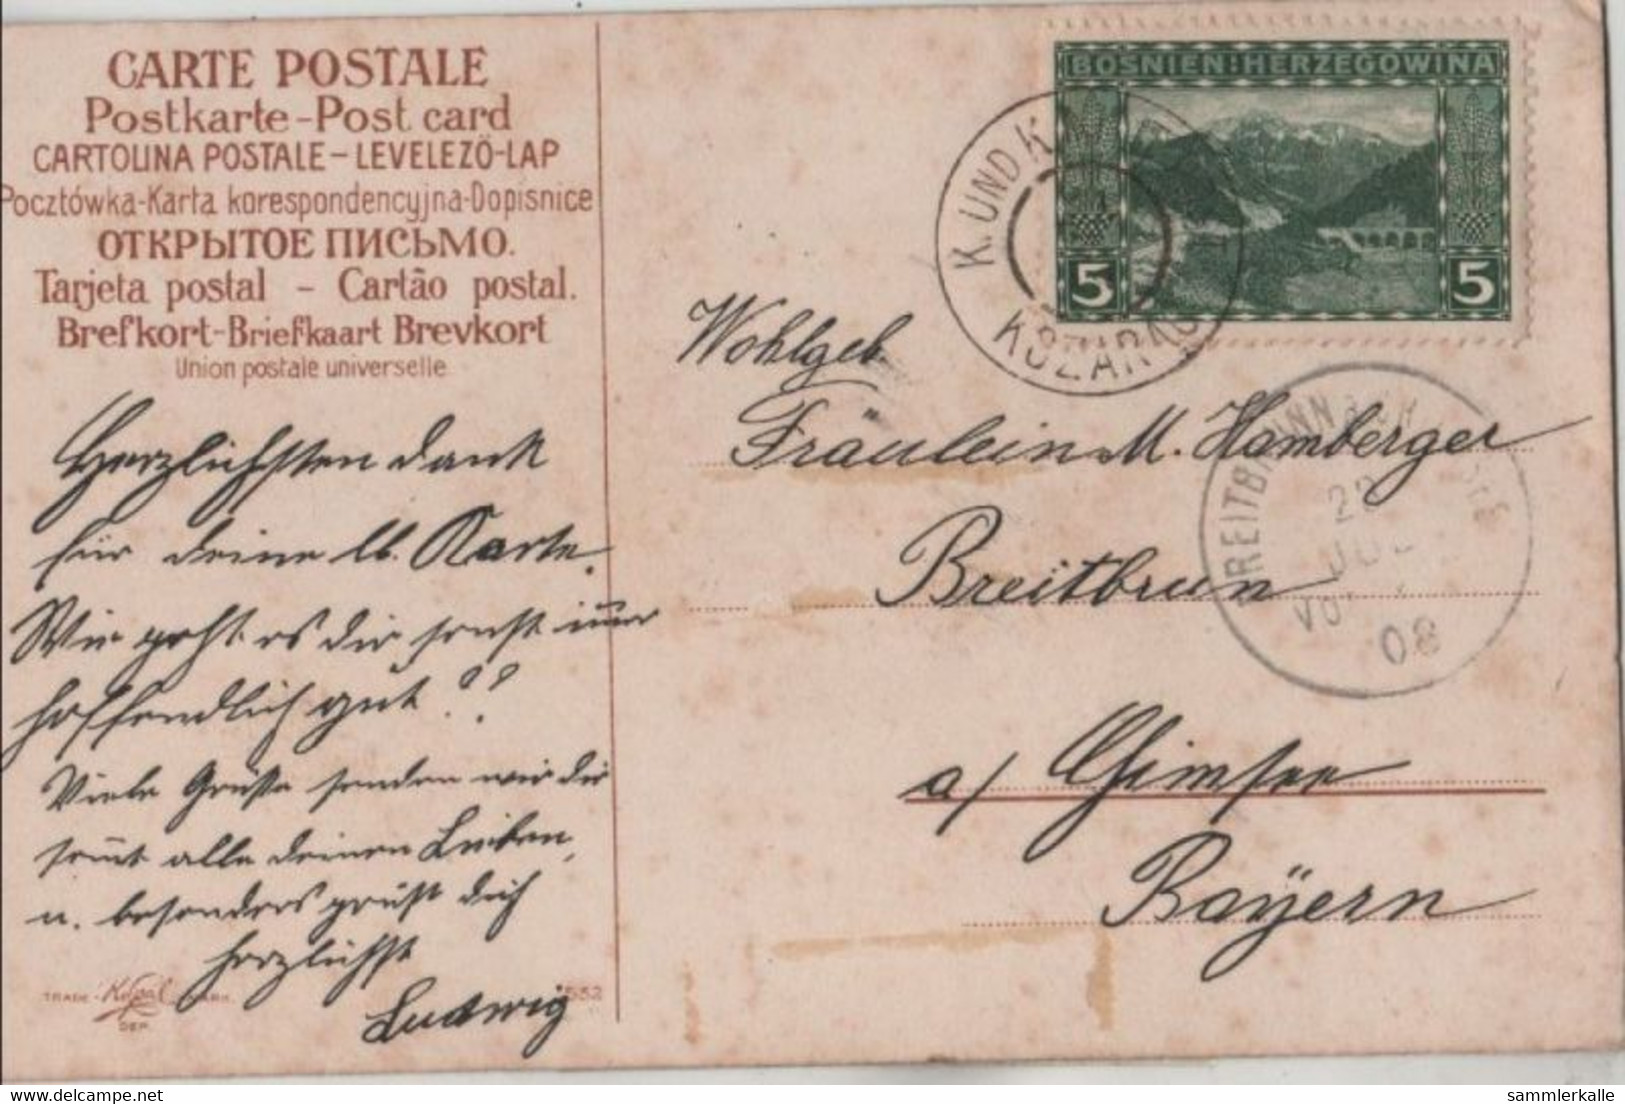 CARTE POSTALE
Postkarte-Post card
CARTOLINA POSTALE-LEVELEZŐ-LAP
Pocztówka-Karta korespondencyjna-Dopisnice
ОТКРЫТОЕ ПИСЬМО.
Tarjeta postal - Cartão postal.
Brefkort-Briefkaart Brevkort
Union postale universelle
Herzlichsten Dank
für deine lb. Karte.
Wie geht es dir sonst immer
hoffendlich gut??
Viele Grüße senden wir dir
samt alle deinen Lieben,
u. besonders grüßt dich
herzlichst
Ludwig
TRADE MARK
DEP.
552
BOSNIEN:HERZEGOWINA
5 5
K. UND K.
KOZARAC
Wohlgeb
Fräulein M. Hamberger
Breitbrun
a/ Chimsee
Bayern
08
www.delcampe.net
sammlerkalle